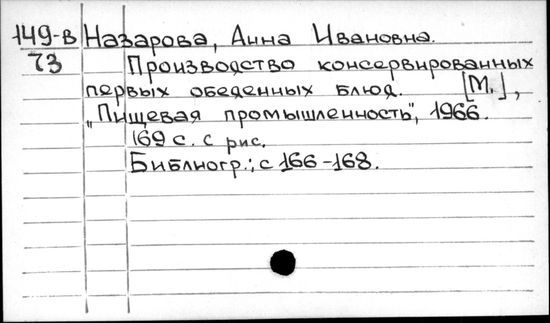 149-в Назарова, Анна Ивановна.
73 Производство консервированных
первых обеденных блюд. [М.],
„Пищевая промышленность", 1966.
169 с. с рис.
Библиогр.: с 166-168.